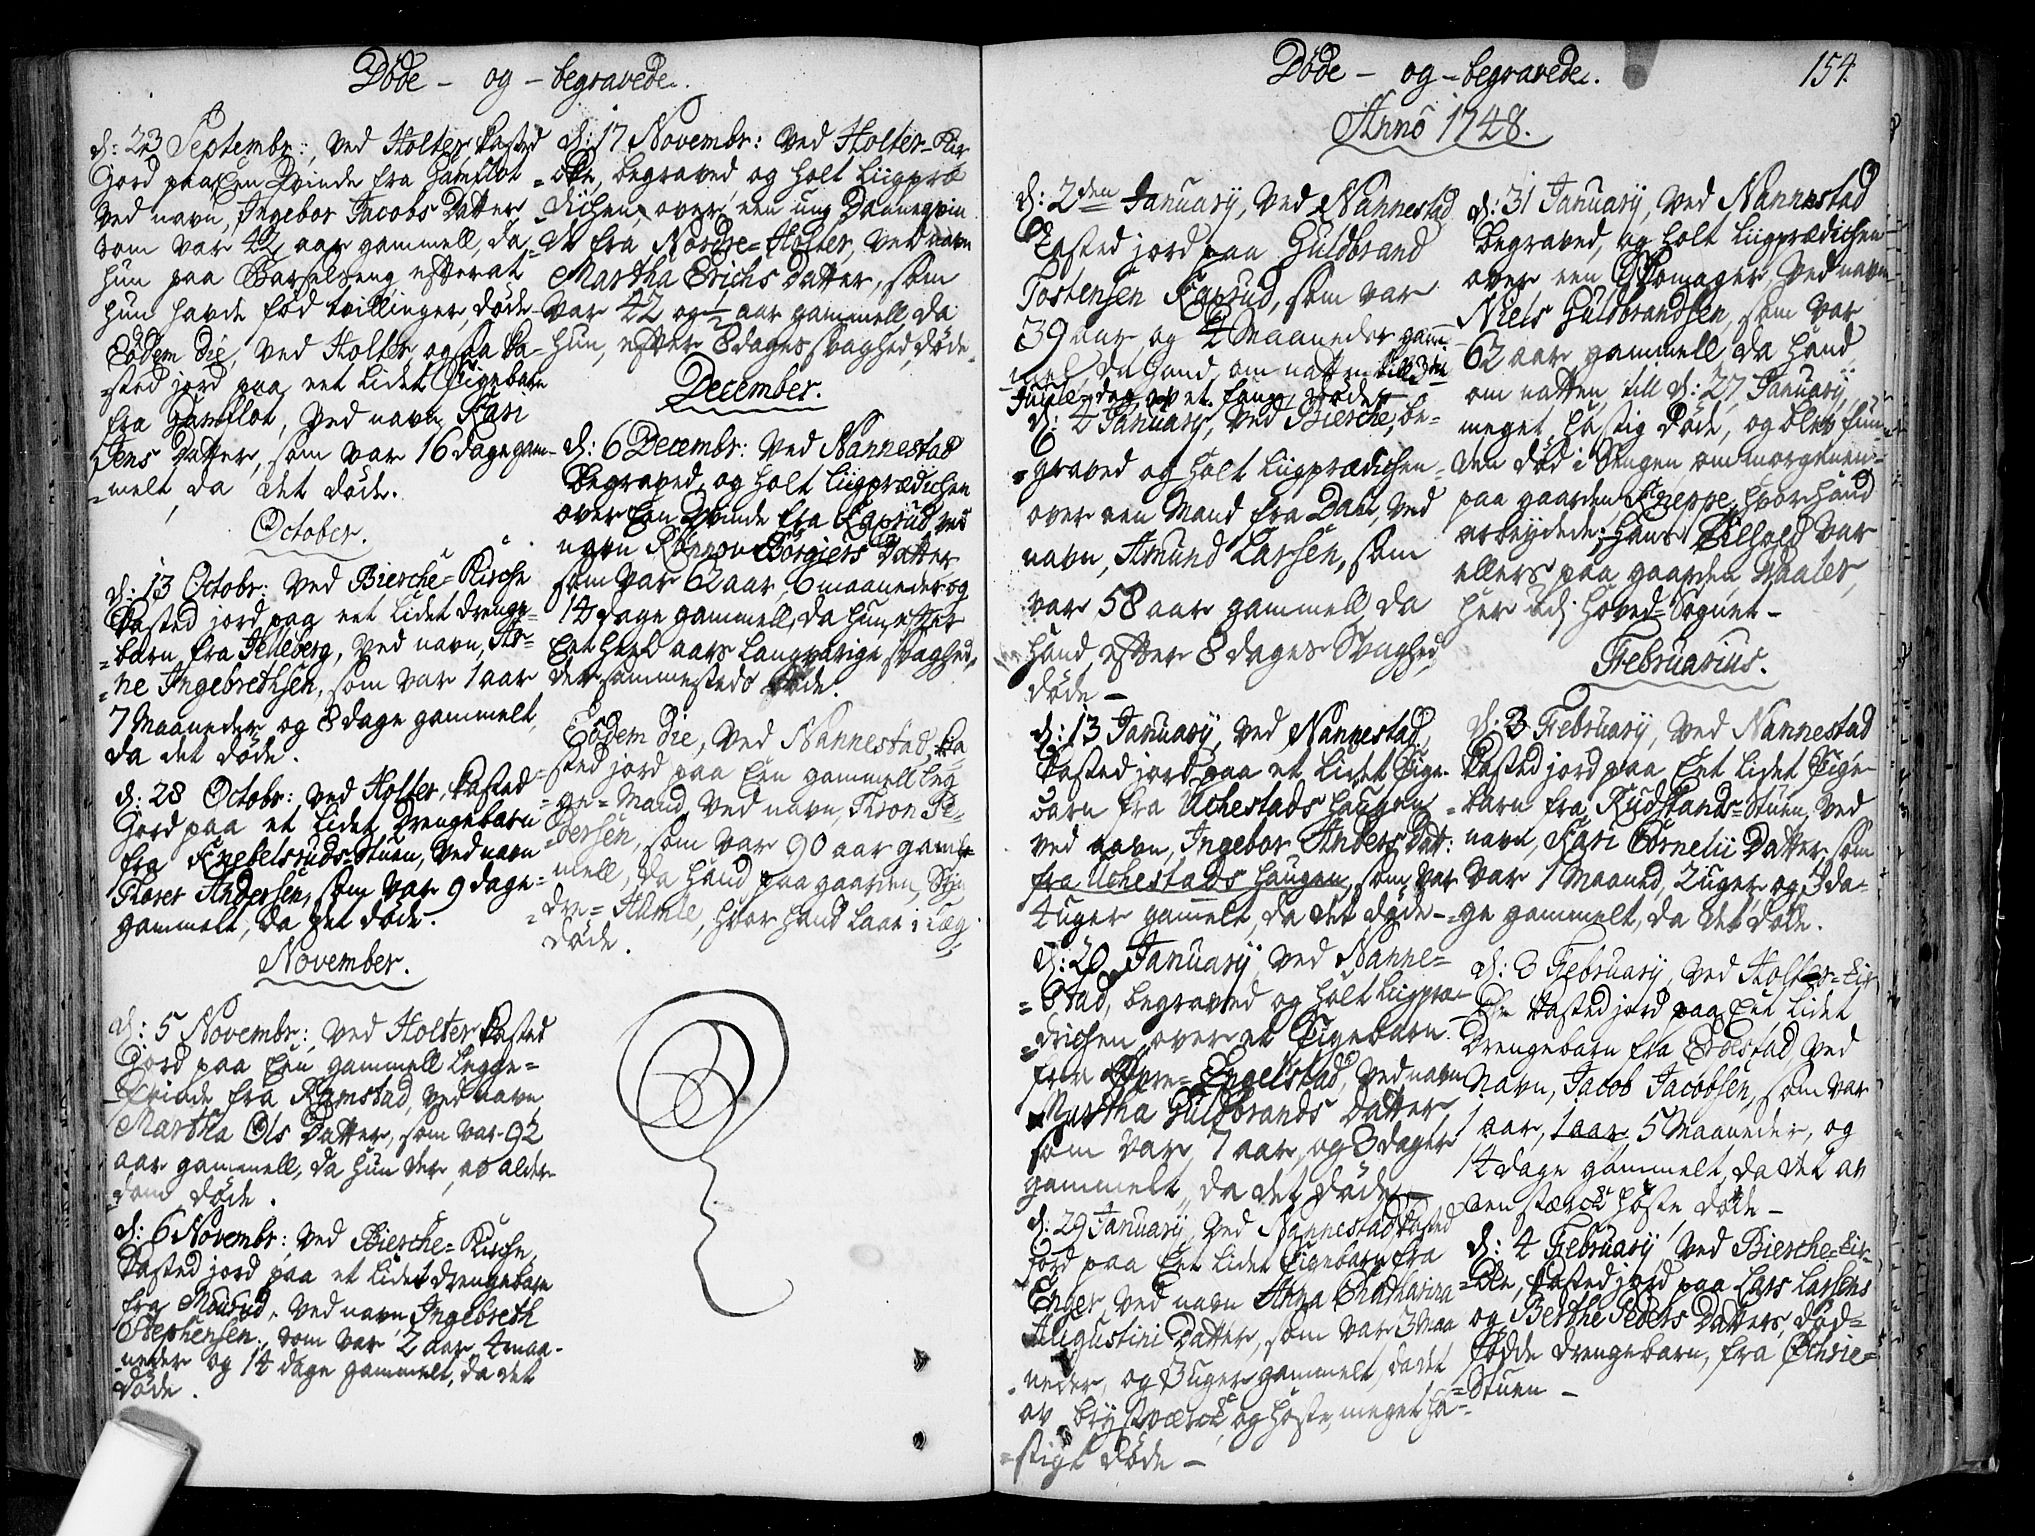 Døde - og - begravede.
d: 23 Septembr:, ved Holter, kasted
Jord paa Een Qvinde fra Hamflot
ved navn, Ingebor Jacobs Datter
som var 42 aar gammell, da
hun paa Barselseng efterat
hun havde fød tvillinger, døde
Eodem Die, ved Holter ogsaa ka-
sted jord paa eet lidet Pigebarn
fra Hamflot, ved navn Kari
Jens Datter, som var 16 dage gam-
=melt, da det døde.
October.
d: 13 Octobr: ved Bierche=Kirche
kasted jord paa eet lidet drenge-
=barn fra Jelleberg, ved navn, Ar-
=ne Ingebrethsen, som var 1 aar
7 Maaneder og 8 dage gammelt,
da det døde.
d: 28 Octobr: ved Holter, kasted
Jord paa et lidet drengebarn
fra Knebelsruds=Stuen, ved navn
Thorer Andersen, som var 9 dage
gammelt, da det døde.
November.
d: 5 Novembr:, ved Holter kasted
Jord paa Een gammell Legge=
Qvinde fra Ramstad, ved navn
Martha Ols Datter, som var 92
aar gammell, da hun der, av alder-
dom døde.
d: 6 Novembr: ved Bierche=Kirche,
kasted jord paa et lidet drengebarn
fra Mourud, ved navn Ingebreth
Stephensen, som var 2 aar, 4 maa-
neder og 14 dage gammelt, da det
døde.
d: 17 Novembr: ved Holter=Kir
=che, begraved og holt Liigpræ
dichen, over een ung Dannegvin
de fra Nordre=Holter, ved navn
Martha Erichs Datter, som
var 42 og 1/2 aar gammell, da
hun, efter 8 dages svaghed, døde.
December.
d: 6 Decembr: ved Nannestad
Begraved, og holt Liigprædichen
over Een Qvinde fra Kaprud ved
navn Rønnov Børgiers Datter
som var 62 aar, 6 maaneder og
14 dage gammell, da hun, efter
Eet heelt aars langvarige svaghed,
dersammesteds døde.
Eodem die, ved Nannestad, ka
=sted jord paa Een gammell Leg
=ge=Mand, ved navn, Thron Pe-
dersen, som var 90 aar gam-
mell, da hand paa gaarden, Syn
dre=Hamle, hvor hand laae i Læg,
døde.
Døde - og - begravede.
154.
Anno 1748.
d: 2den January, ved Nannestad,
Casted jord paa Guldbrand
Tostensen Kaprud, som var
39 aar og 4 Maaneder gam-
mel, da hand, om natten till 3die
Juule=dag døde.
d: 4 January, ved Bierche, be-
=graved og holt Liigprædichen
over een Mand fra Dahl, ved
navn, Amund Larsen, som
var 58 aar gammell, da
hand, efter 8 dages Svaghed,
døde -
d: 13 January, ved Nannestad,
kasted jord paa et lidet Pige-
barn fra Uchestads haugen
ved navn, Ingebor Anders Datt:
fra Uchestads haugen, som var
4 uger gammelt, da det døde -
d: 20 January ved Nanne=
=stad, begraved og holt Liigpræ-
=dichen, over et Pigebarn
fra Øvre=Engelstad, ved navn
Martha Guldbrands Datter
som var 7 aar, og 3 dager
gammelt, da det døde -
d: 29 January, ved Nannestad kasted
Jord paa Eet lidet Pigebarn fra
Enger, ved navn Anna Chatharina
Augustini Datter, som var 3 Maa
neder, og 3 uger gammelt, da det
av brystværck, og hoste, meget ha=
=stigt døde -
d: 31 January, ved Nannestad
Begraved, og holt Liigprædichen
over een Skomager, ved navn
Niels Guldbrandsen, som var
62 aar gammell, da hand,
om natten, till d: 27 January,
meget hastig døde, og blev fun-
den død i Sengen om morgenen
paa gaarden, Kieppe, hvor hand
arbeydede; hans Tilhold var
ellers paa gaarden, Maaler,
her udj hoved=Sognet -
Februarius.
d: 3 February, ved Nannestad
kasted jord paa Eet lidet Pige
=barn fra Rudstands=Stuen, ved
navn, Kari Cornelii Datter, som
var 1 Maaned, 2 uger, og 3 da-
=ge gammelt, da det døde.
d: 3 February, ved Holter=Kir
che kasted jord, paa Eet lidet
Drengebarn fra Dølstad, ved
navn, Jacob Jacobsen, som var
1 aar, 1 aar, 5 Maaneder, og
14 dage gammelt, da det av
een stærck hoste døde -
d: 4 February, ved Bierche=Kir-
=che, kasted jord paa Lars Larsens
og Berthe Peders Datters, død=
fødde drengebarn, fra Ochrie=
=Stuen -